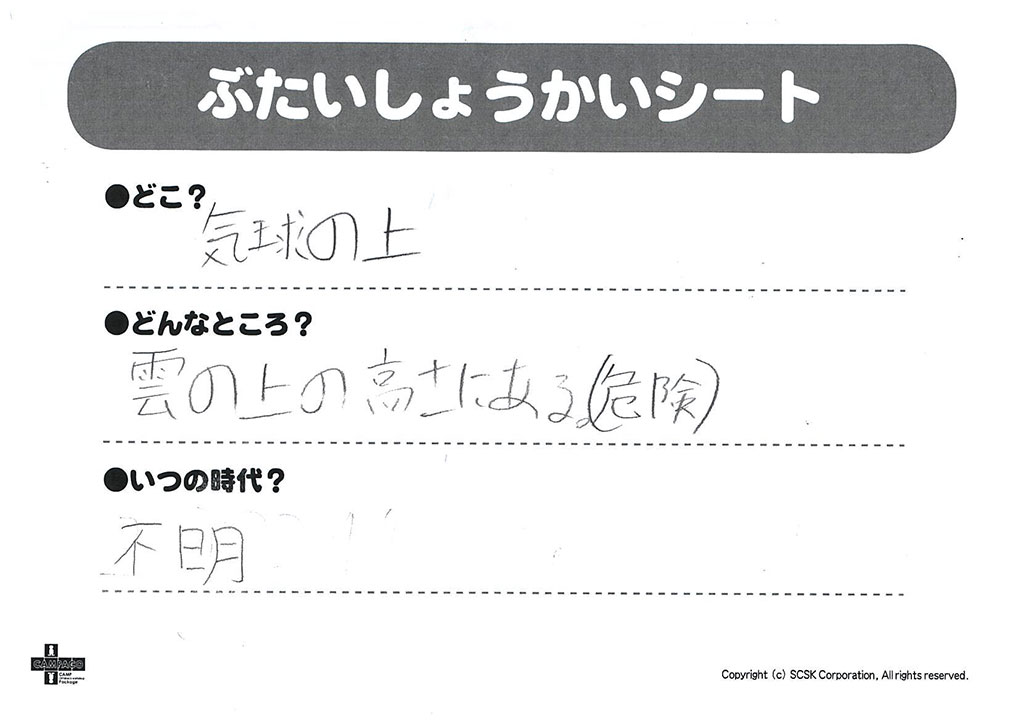 ぶたいしょうかいシート
●どこ?
気球の上
●どんなところ?
雲の上の高さにある。(危険)
●いつの時代?
不明
CAMPACO
CAMP
Package
Copyright (c) SCSK Corporation, All rights reserved.